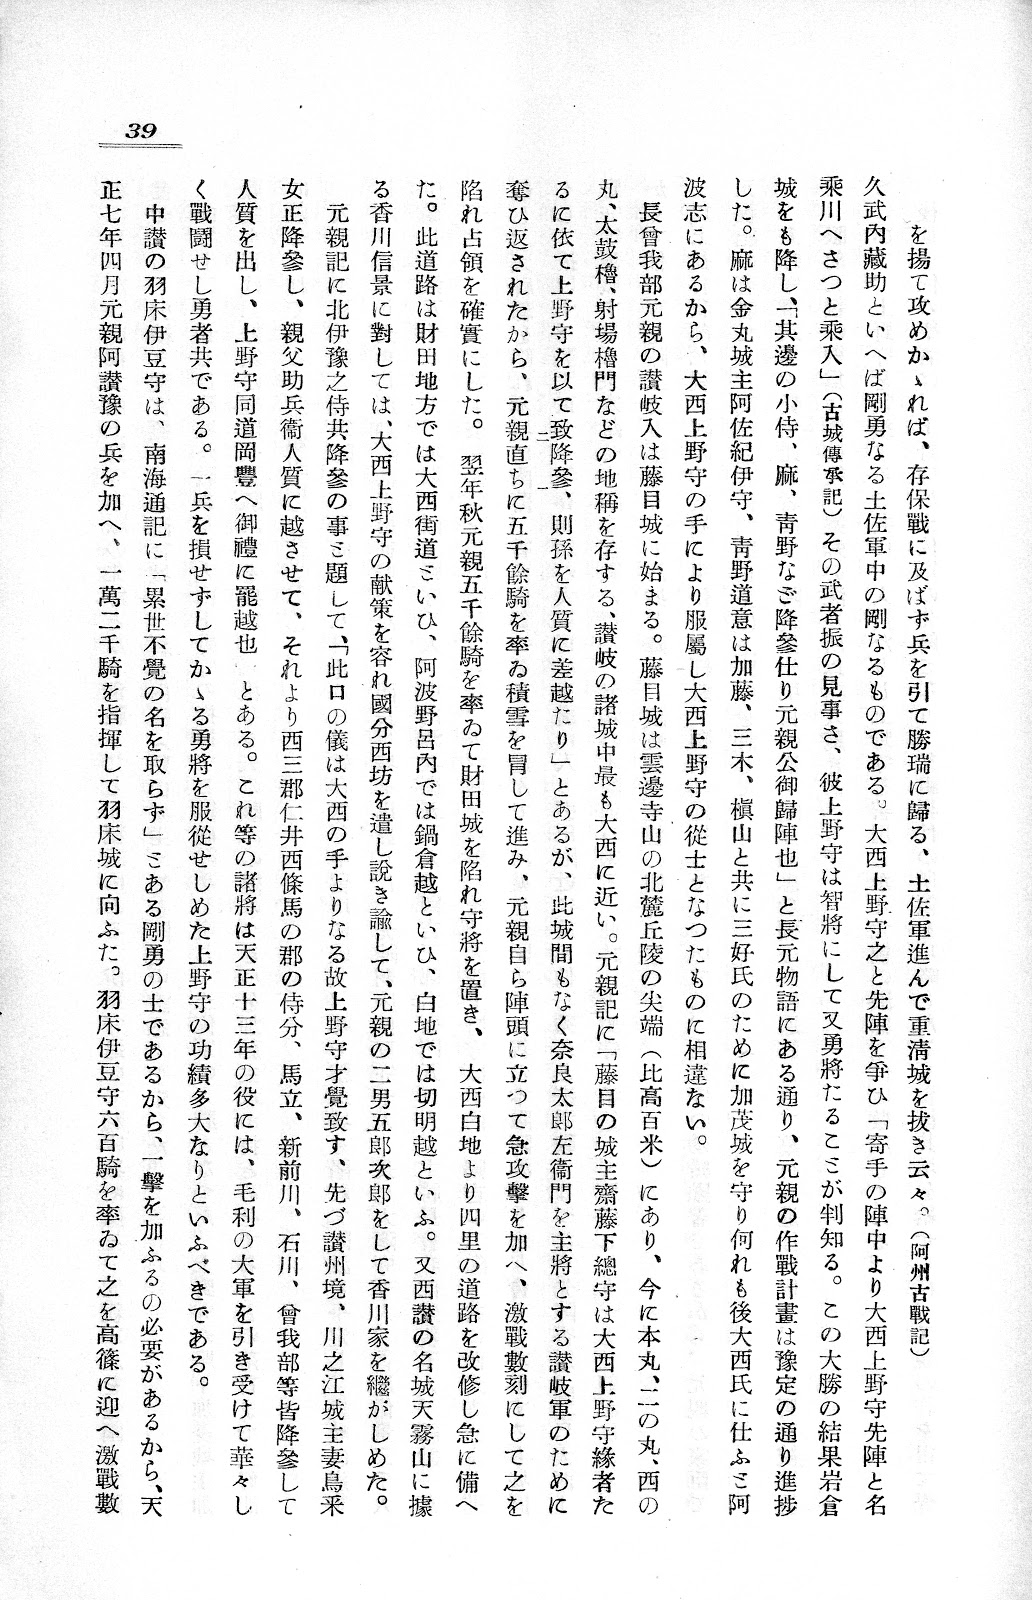 39
を揚て攻めかゝれば、存保戰に及ばず兵を引て勝瑞に歸る、土佐軍進んで重淸城を抜き云々。（阿州古戰記）
久武內藏助といへば剛勇なる土佐軍中の剛なるものである。大西上野守之と先陣を爭ひ「寄手の陣中より大西上野守先陣と名
乘川へさつと乘入」（古城傳承記）その武者振の見事さ、彼上野守は智將にして又勇將たることが判知る。この大勝の結果岩倉
城をも降し、「其邊の小侍、麻、靑野など降參仕り元親公御歸陣也」と長元物語にある通り、元親の作戰計畫は豫定の通り進捗
した。麻は金丸城主阿佐紀伊守、靑野道意は加藤、三木、槇山と共に三好氏のために加茂城を守り何れも後大西氏に仕ふと阿
波志にあるから、大西上野守の手により服屬し大西上野守の從士となつたものに相違ない。
長曾我部元親の讃岐入は藤目城に始まる。藤目城は雲邊寺山の北麓丘陵の尖端（比高百米）にあり、今に本丸、二の丸、西の
丸、太鼓櫓、射場櫓門などの地稱を存する、讃岐の諸城中最も大西に近い。元親記に「藤目の城主齋藤下總守は大西上野守緣者た
るに依て上野守を以て致二降參一、則孫を人質に差越たり」とあるが、此城間もなく奈良太郎左衞門を主將とする讃岐軍のために
奪ひ返されたから、元親直ちに五千餘騎を率ゐ積雪を冒して進み、元親自ら陣頭に立つて急攻擊を加へ、激戰數刻にして之を
陷れ占領を確實にした。翌年秋元親五千餘騎を率ゐて財田城を陷れ守將を置き、大西白地より四里の道路を改修し急に備へ
た。此道路は財田地方では大西街道といひ、阿波野呂內では鍋倉越といひ、白地では切明越といふ。又西讃の名城天霧山に據
る香川信景に對しては、大西上野守の献策を容れ國分西坊を遣し說き諭して、元親の二男五郎次郎をして香川家を繼がしめた。
元親記に北伊豫之侍共降參の事と題して、「此口の儀は大西の手よりなる故上野守才覺致す、先づ讃州境、川之江城主妻鳥釆
女正降參し、親父助兵衞人質に越させて、それより西三郡仁井西條馬の郡の侍分、馬立、新前川、石川、曾我部等皆降參して
人質を出し、上野守同道岡豐へ御禮に罷越也 とある。これ等の諸將は天正十三年の役には、毛利の大軍を引き受けて華々し
く戰鬪せし勇者共である。一兵を損せずしてかゝる勇將を服從せしめた上野守の功績多大なりといふべきである。
中讃の羽床伊豆守は、南海通記に「累世不覺の名を取らず」とある剛勇の士であるから、一擊を加ふるの必要があるから、天
正七年四月元親阿讃豫の兵を加へ、一萬二千騎を指揮して羽床城に向ふた。羽床伊豆守六百騎を率ゐて之を高篠に迎へ激戰數